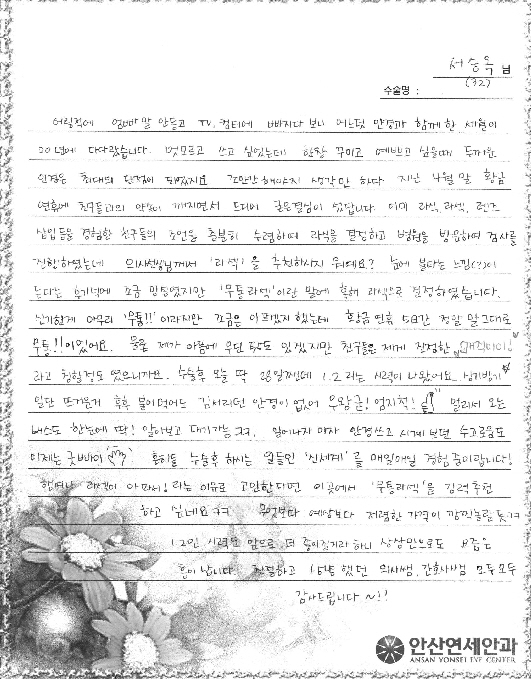 서승옥 님
수술명 : (32)
어릴적에 엄마말 안듣고 TV, 컴터에 빠지다 보니 어느덧 안경과 함께한 세월이
20년에 다다랐습니다. 멋모르고 쓰고 싶었는데 한창 꾸미고 예쁘고 싶을때 두꺼운
안경은 최대의 단점이 되었지요 해야지 생각만 하다 지난 4월 말 황금
연휴에 친구들과의 약속이 깨지면서 드디어 결심이 섰답니다 이미 라식, 라섹, 렌즈
삽입등을 경험한 친구들의 조언을 충분히 수렴하여 라식을 결정하고 병원을 방문하여 검사를
진행하였는데 의사선생님께서 '라섹'을 추천하시지 뭐예요? 눈에 불타는 느낌(?)이
든다는 후기덕에 조금 망설였지만 '무통라섹'이란 말에 혹해 라섹으로 결정하였습니다.
신기한게 아무리 '무통!!' 이라지만 조금은 아프겠지 했는데 황금연휴 5일간 정말 말그대로
무통!!이었어요. 물론 제가 아픔에 무딘 탓도 있겠지만 친구들은 제게 진정한
라고 칭할정도 였으니까요. 수술후 오늘 딱 28일째인데 1.2 라는 시력이 나왔어요.
일단 뜨거운거 후후 불어먹어도 김서리던 안경이 없어 우왕굳! 엄지척! 멀리서 오는
버스도 한눈에 딱! 알아보고 대기가능 ㅋㅋ. 일어나자 마자 안경쓰고 시계 보던 수고로움도
이제는 굿바이 흔히들 수술후 하시는 말들인 '신세계'를 매일매일 경험중이랍니다!
행여나 라섹이 아파서! 라는 이유로 고민한다면 이곳에서 '무통라섹'을 강력추천
하고 싶네요 ㅋㅋ 무엇보다 예상보다 저렴한 가격이 깜찍놀람 듯ㅋㅋ
1.2인 시력은 앞으로 더 좋아질거라 하니 상상만으로도
힘이 납니다 친절하고 했던 의사쌤, 간호사쌤 모두모두
감사드립니다 ~!!
안산연세안과
ANSAN YONSEI EYE CENTER